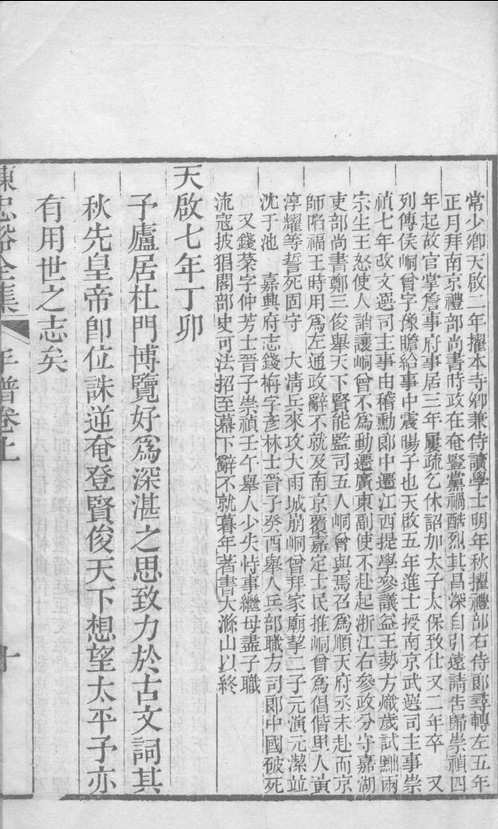 常少卿天啟二年擢本寺卿兼侍讀學士明年秋擢禮部右侍郎尋轉左五年
正月拜南京禮部尚書時政在奄豎黨禍酷烈其昌深自引遠請告歸崇禎四
年起故官掌詹事府事居三年屢疏乞休詔加太子太保致仕又二年卒 又
列傳侯峒曾字豫瞻給事中震暘子也天啟五年進士授南京武選司主事崇
禎七年改文選司主事由稽勳郎中遷江西提學參議益王勢方熾歲試黜兩
宗生王怒使人誚讓峒曾不為動遷廣東副使不赴起浙江右參政分守嘉湖
吏部尚書鄭三俊舉天下賢能監司五人峒曾與焉召為順天府丞未赴而京
師陷福王時用為左通政辭不就及南京覆嘉定士民推峒曾為倡偕里人黃
淳耀等誓死固守 大清兵來攻大雨城崩峒曾拜家廟挈二子元演元潔並
沈于池 嘉興府志錢栴字彥林士晉子癸酉舉人兵部職方司郎中國破死
又錢棻字仲芳士晉子崇禎壬午舉人少失恃事繼母盡子職
流寇披猖閣部史可法招至幕下辭不就暮年著書大滌山以終
天啟七年丁卯
予廬居杜門博覽好為深湛之思致力於古文詞其
秋先皇帝卽位誅逆奄登賢俊天下想望太平予亦
有用世之志矣
陳忠裕全集 年譜卷上 十